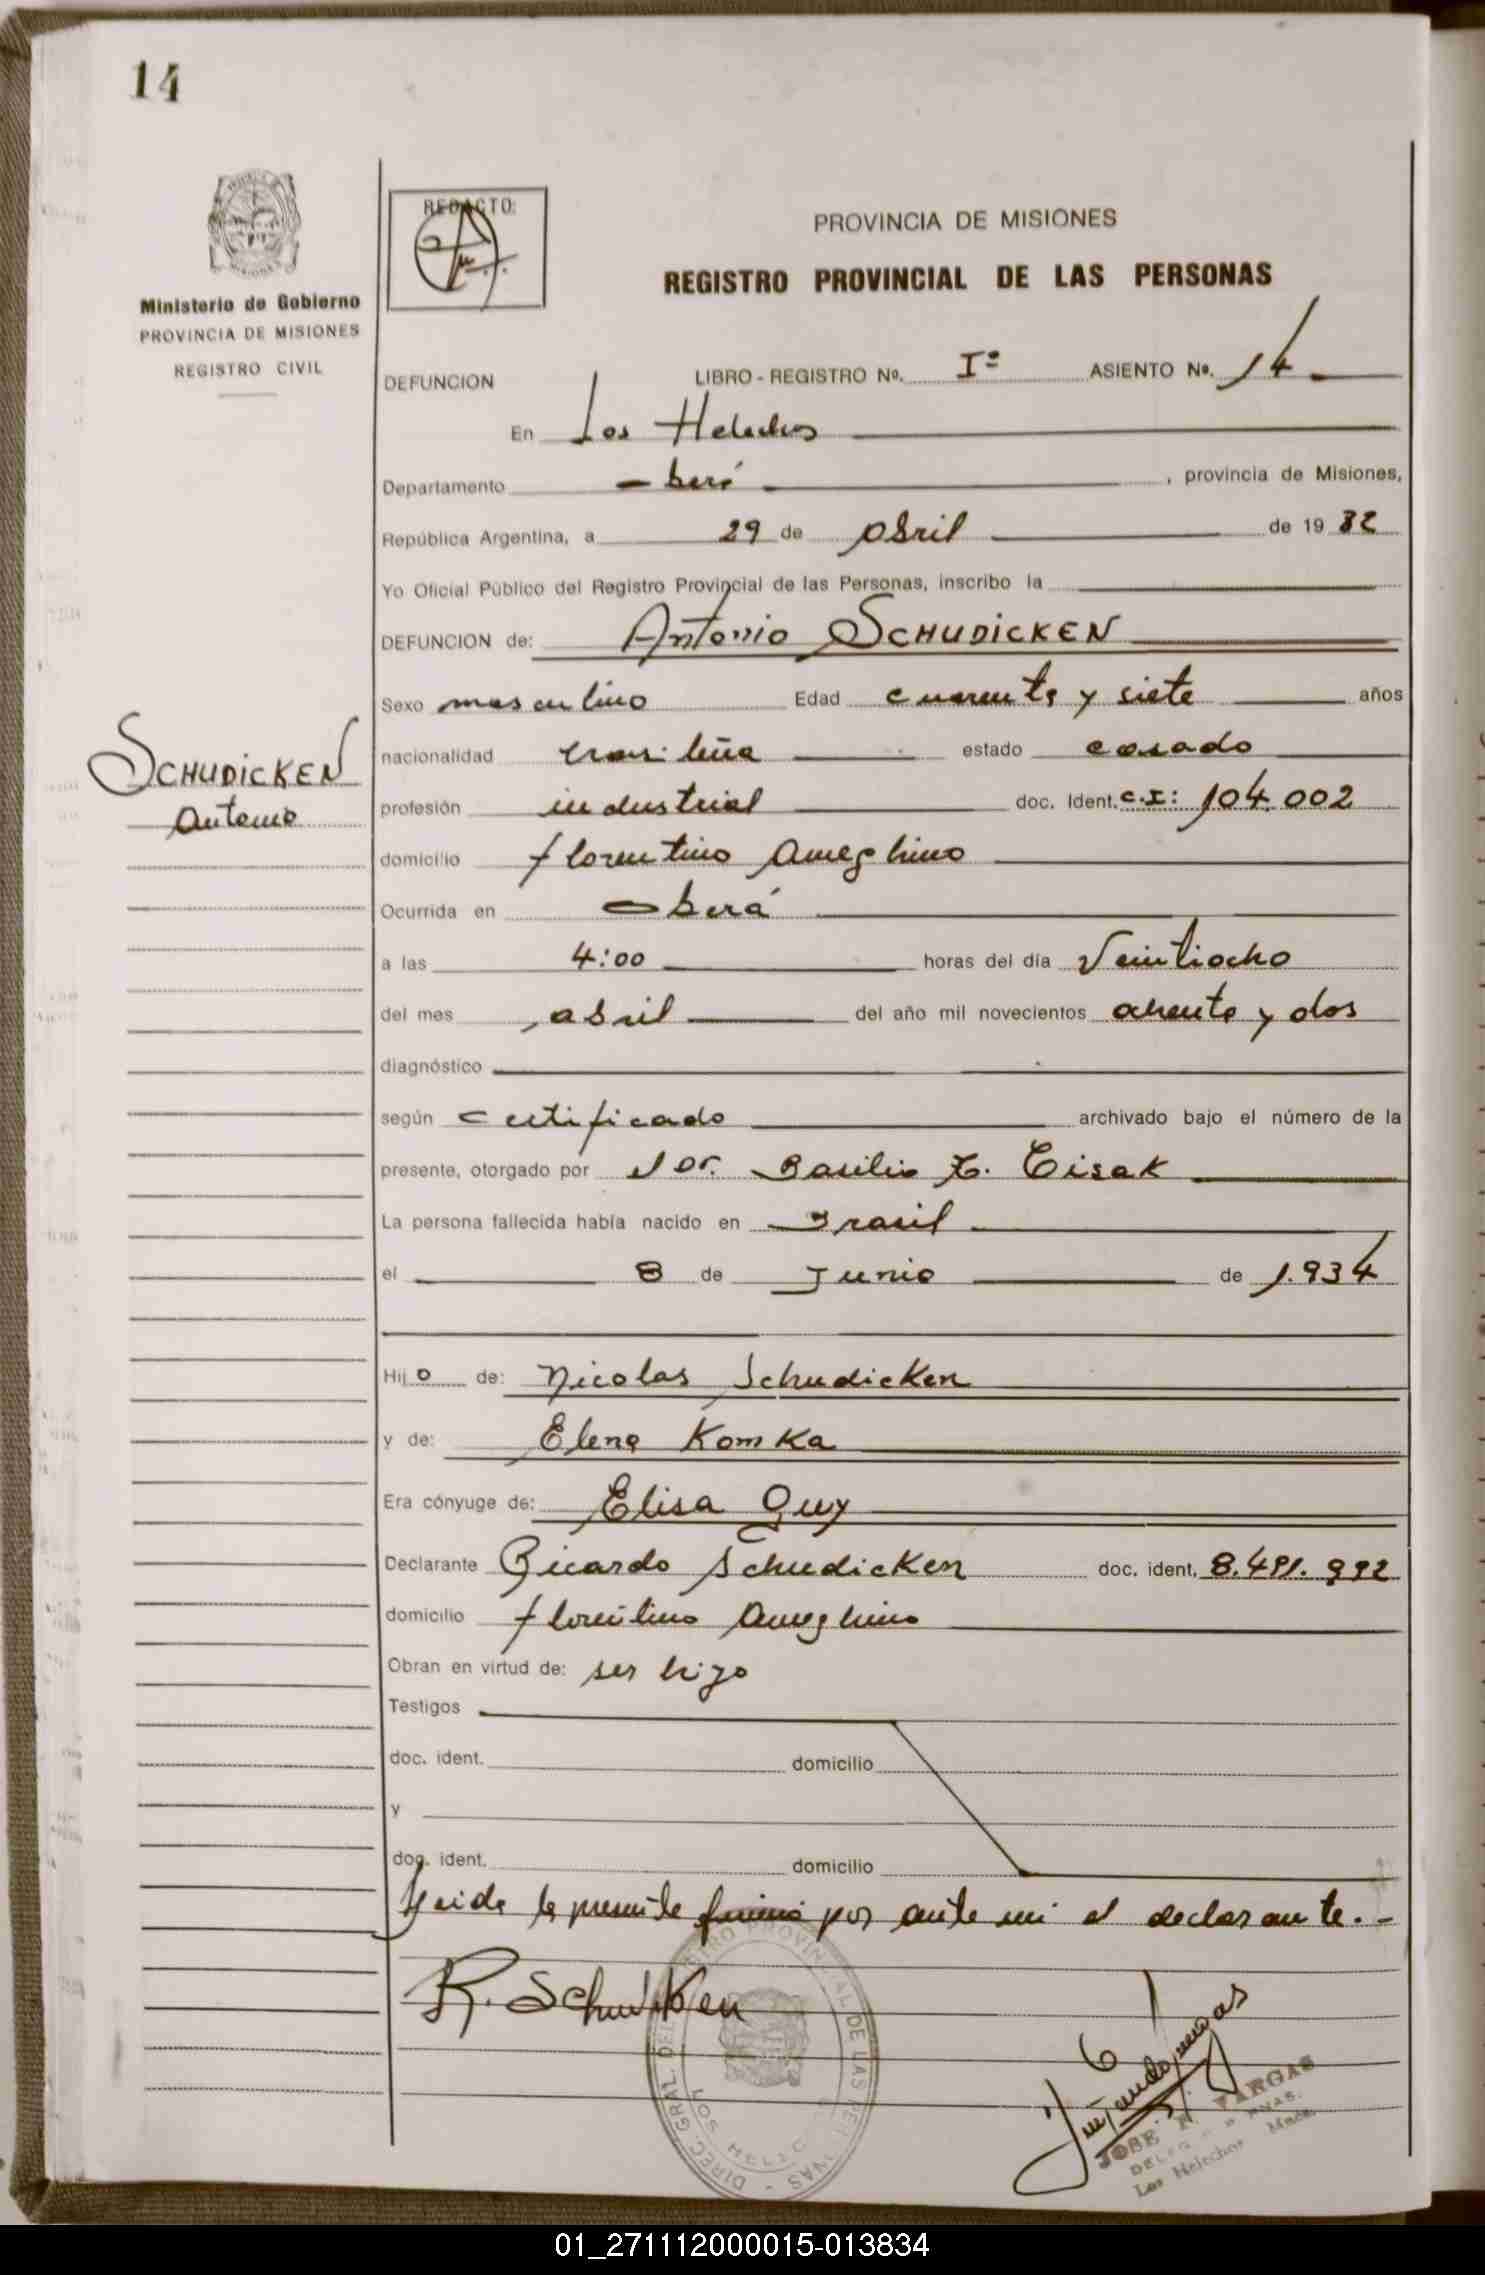 14
Ministerio de Gobierno
PROVINCIA DE MISIONES
REGISTRO CIVIL
REDACTO:
PROVINCIA DE MISIONES
REGISTRO PROVINCIAL DE LAS PERSONAS
DEFUNCION LIBRO - REGISTRO Nº. Iº ASIENTO Nº. 14
En Los Helechos
Departamento Oberá, provincia de Misiones,
República Argentina, a 29 de abril de 19 82
Yo Oficial Público del Registro Provincial de las Personas, inscribo la
DEFUNCION de: Antonio SCHUDICKEN
Sexo masculino Edad cuarenta y siete años
SCHUDICKEN
Antonio
nacionalidad brasileña estado casado
profesión industrial doc. Ident. C.I: 104.002
domicilio florentino Ameghino
Ocurrida en Oberá
a las 4:00 horas del día Veintiocho
del mes abril del año mil novecientos ochenta y dos
diagnóstico
según certificado archivado bajo el número de la
presente, otorgado por el Dr. Basilio Cisak
La persona fallecida había nacido en Brasil
el 8 de Junio de 1.934
Hij o de: Nicolas Schudicken
y de: Elena Komka
Era cónyuge de: Elisa Guy
Declarante Ricardo Schudicken doc. ident. 8.491.992
domicilio florentino Ameghino
Obran en virtud de: ser hijo
Testigos
doc. ident. domicilio
y
doc. ident. domicilio
Leida la presente firmó por ante mi el declarante.-
R. Schudicken
DIREC. GRAL. DEL REGISTRO PROVINCIAL DE LAS PERSONAS
JOSE F. VARGAS
Los Helechos Mnes.
01_271112000015-013834